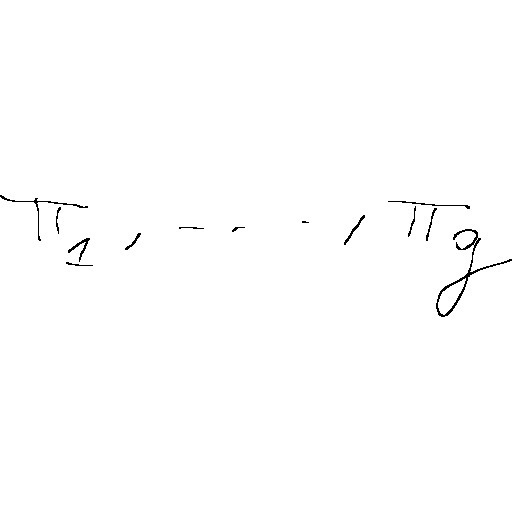 π₁, ..., π_g